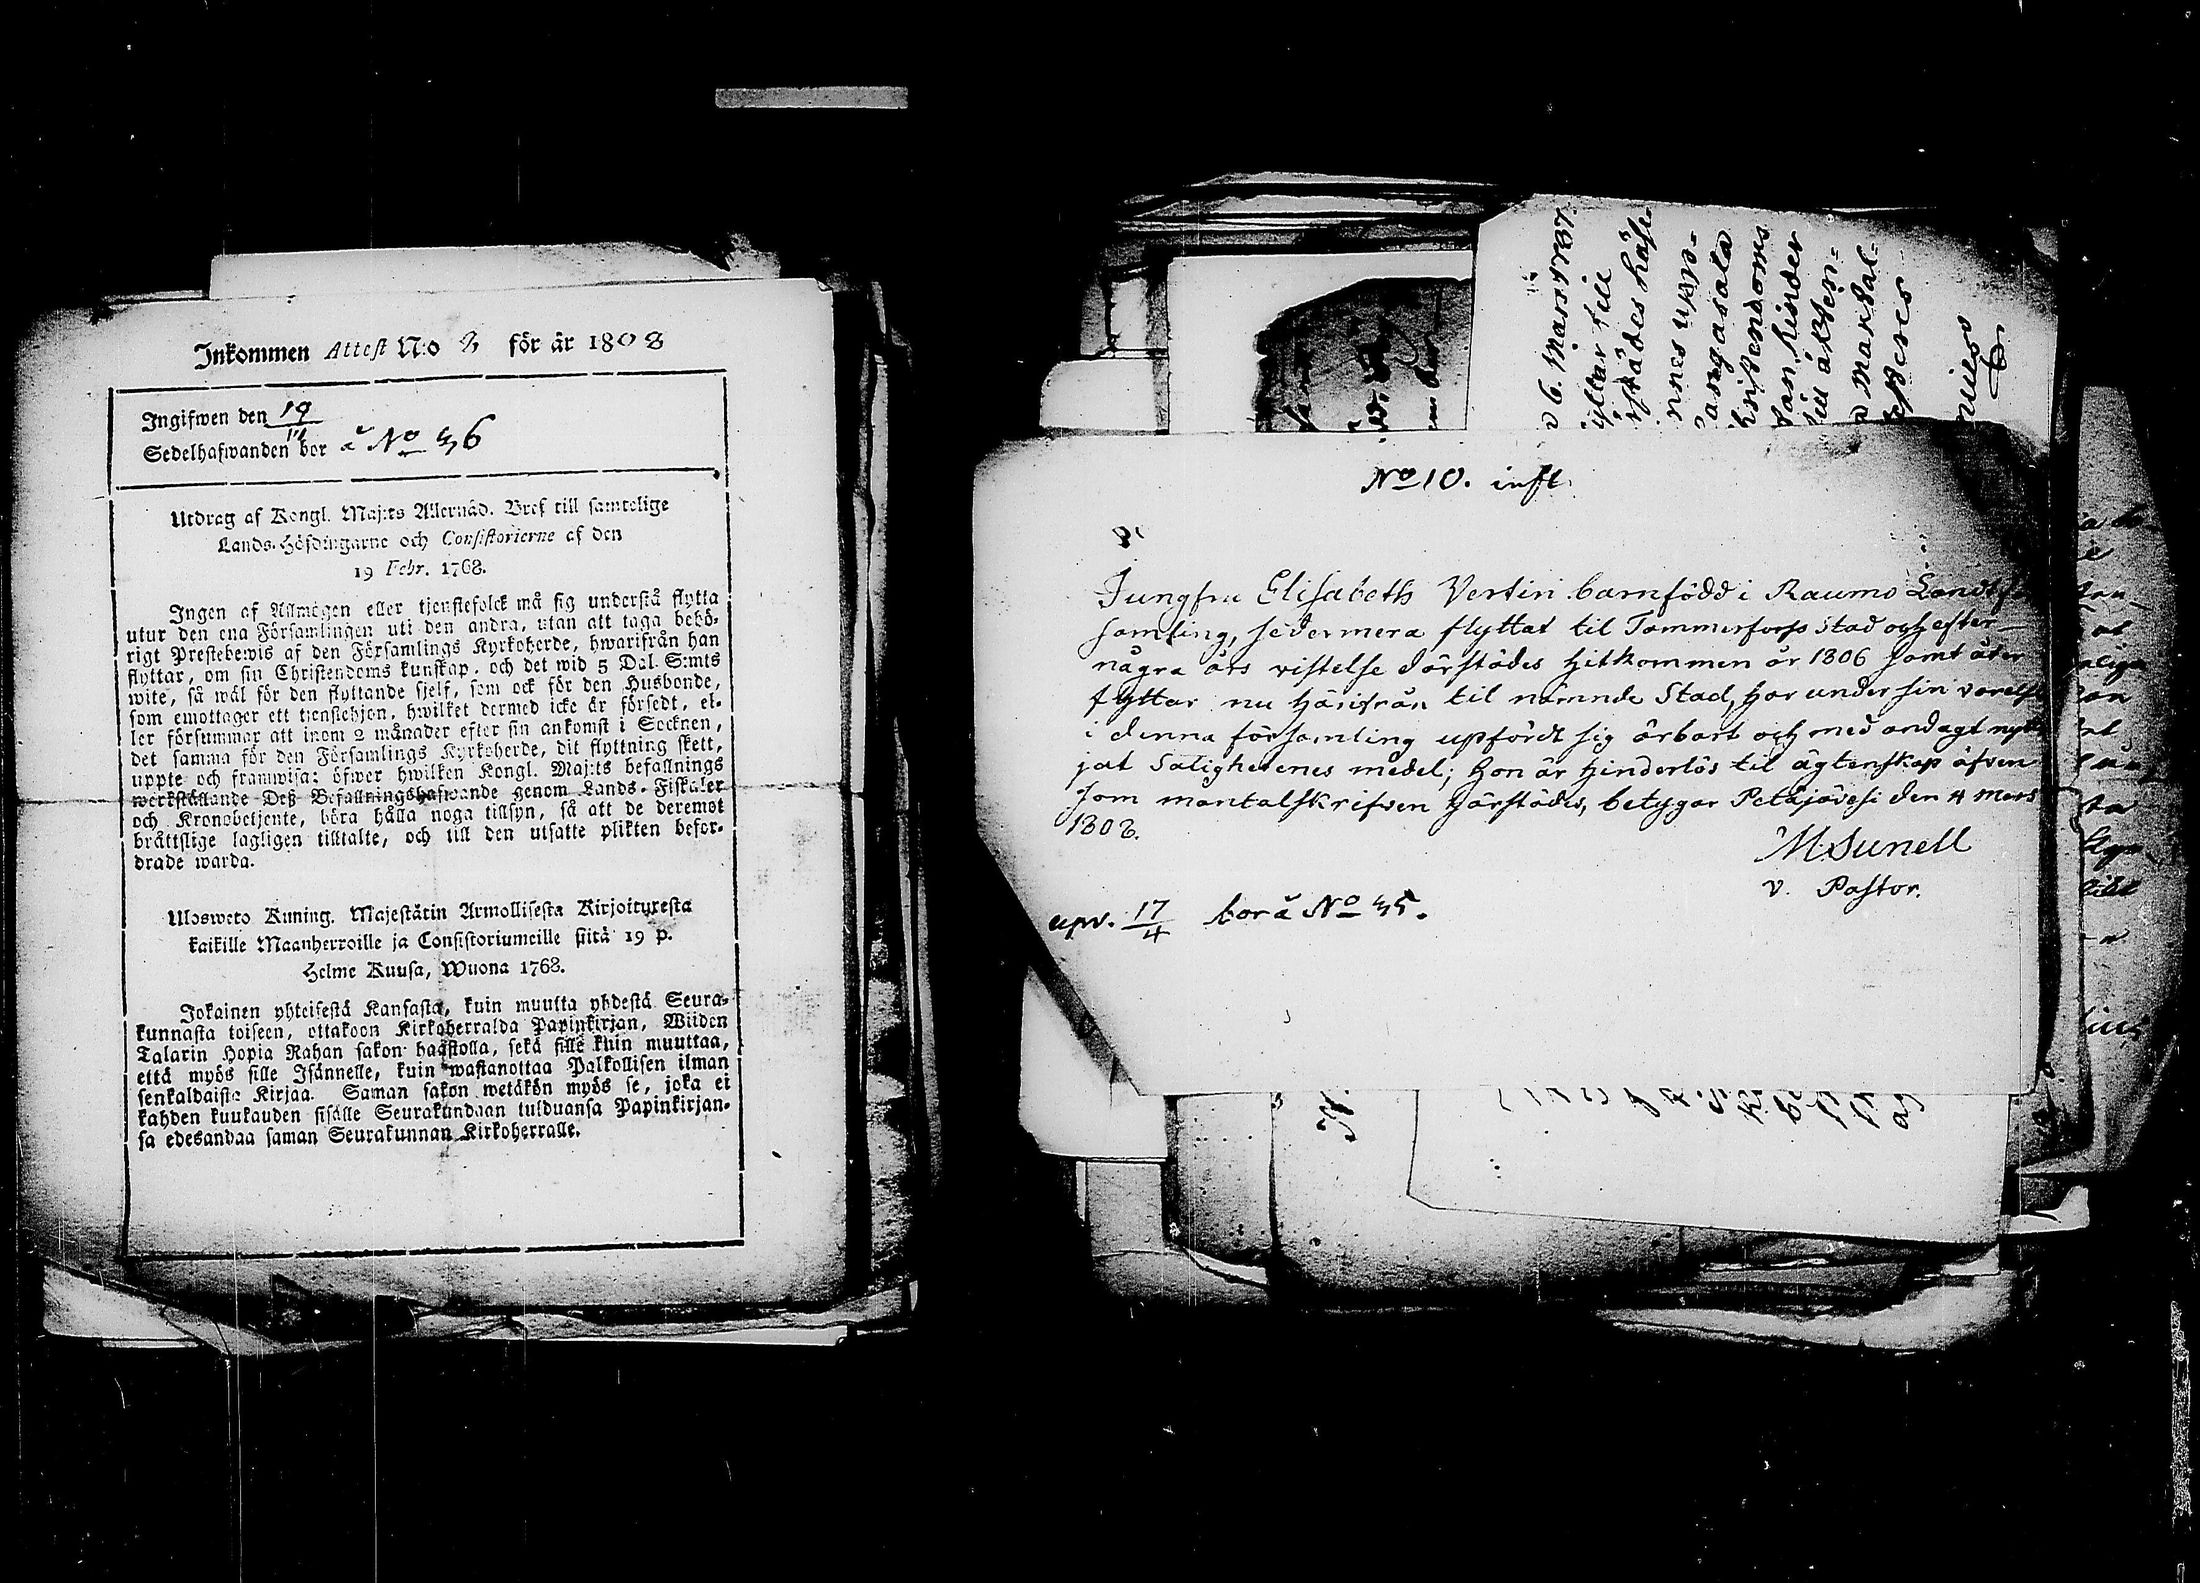 Inkommen Attest N:o 3 för år 1808
Ingifwen den 19
Sedelhafwanden bor å No 36
Utdrag af Kongl. Maj:ts Allernåd. Bref till samtelige
Lands-Höfdingarne och Consistorierne af den
19 Febr. 1768.
Ingen af Allmogen eller tjenstefolck må sig understå flytta
utur den ena Församlingen uti den andra, utan att taga behö-
rigt Prestebewis af den Församlings Kyrkoherde, hwarifrån han
flyttar, om sin Christendoms kunskap, och det wid 5 Dal. S:mts
wite, så wäl för den flyttande sjelf, som ock för den Husbonde,
som emottager ett tjenstehjon, hwilket dermed icke är försedt, el-
ler försummar att inom 2 månader efter sin ankomst i Socknen,
det samma för den Församlings Kyrkoherde, dit flyttning skett,
uppte och framwisa: öfwer hwilken Kongl. Maj:ts befallnings
werkställande Deß Befallningshafwande genom Lands-Fiskaler
och Kronobetjente, böra hålla noga tillsyn, så att de deremot
bråttslige lagligen tilltalte, och till den utsatte plikten befor-
drade warda.
Ulosweto Kuning. Majestätin Armollisesta Kirjoituxesta
kaikille Maanherroille ja Consistoriumeille siitä 19 p.
Helme Kuusa, Wuona 1768.
Jokainen yhteisestä Kansasta, kuin muutta yhdestä Seura-
kunnasta toiseen, ottakoon Kirkoherralda Papinkirjan, Wiiden
Talarin Hopia Rahan sakon haastolla, sekä sille kuin muuttaa,
että myös sille Isännelle, kuin wastanottaa Palkollisen ilman
senkaldaista Kirjaa. Saman sakon wetäkön myös se, joka ei
kahden kuukauden sisälle Seurakundaan tulduansa Papinkirjan-
sa edesandaa saman Seurakunnan Kirkoherralle.
6. Mars 1737
till
städes
Kangasala
hinder
No 10. inft.
Jungfru Elisabeth Vertin barnfödd i Raumo Landtför
samling, sedermera flyttat til Tammerfors stad och efter
några års vistelse därstädes hitkommen år 1806 samt åter
flyttar nu härifrån til nämnde Stad, har under sin varelse
i denna församling upfördt sig ärbart och med andagt nytt
jat Salighetenes medel; Hon är hinderlös til ägtenskap äfven
som mantalskrifven härstädes, betygar Petäjävesi den 4 Mars
1808.
M Sunell
v. Pastor.
upv. 17/4 bor å No 35.